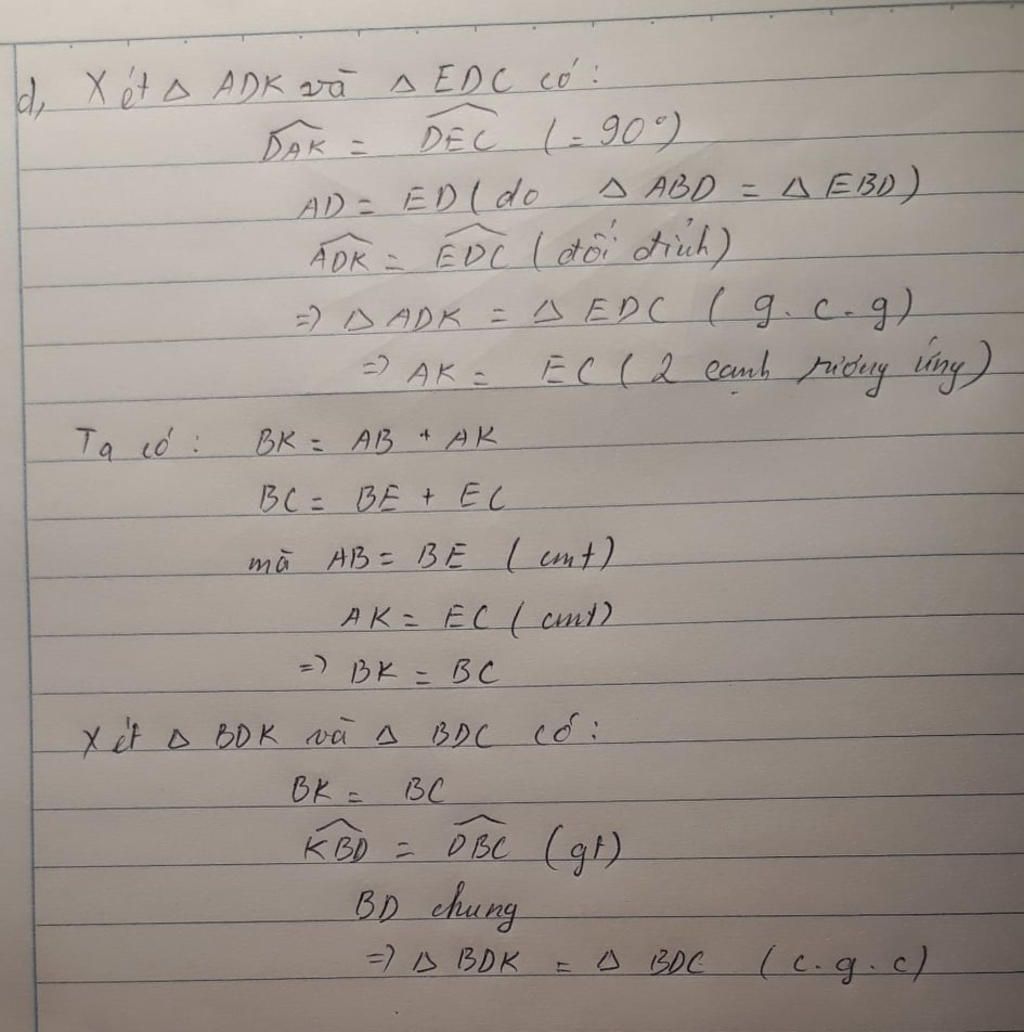 d, Xét Δ ADK và Δ EDC có:
$\widehat{DAK}$ = $\widehat{DEC}$ (= 90°)
AD = ED (do Δ ABD = Δ EBD)
$\widehat{ADK}$ = $\widehat{EDC}$ (đối đỉnh)
=> Δ ADK = Δ EDC (g.c.g)
=> AK = EC (2 cạnh tương ứng)
Ta có: BK = AB + AK
BC = BE + EC
mà AB = BE (cmt)
AK = EC (cmt)
=> BK = BC
Xét Δ BDK và Δ BDC có:
BK = BC
$\widehat{KBD}$ = $\widehat{DBC}$ (gt)
BD chung
=> Δ BDK = Δ BDC (c.g.c)